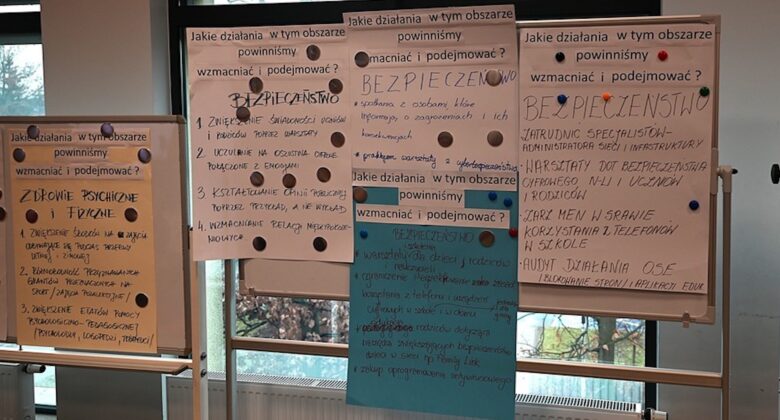 Jakie działania w tym obszarze
powinniśmy
wzmacniać i podejmować?
ZDROWIE PSYCHICZNE
i FIZYCZNE
1. ZWIĘKSZENIE ŚRODKÓW NA ZAJĘCIA
3. ZWIĘKSZENIE ETATÓW POMOCY
PSYCHOLOGICZNO-PEDAGOGICZNEJ
Jakie działania w tym obszarze
powinniśmy
wzmacniać i podejmować?
BEZPIECZEŃSTWO
1. ZWIĘKSZENIE ŚWIADOMOŚCI UCZNIÓW
i RODZICÓW POPRZEZ WARSZTATY
2. UCZULANIE NA OSZUSTWA
POŁĄCZONE Z EMOCJAMI
3. KSZTAŁTOWANIE OPINII PUBLICZNEJ
POPRZEZ PRZYKŁAD, A NIE WYKŁAD
4. WZMACNIANIE RELACJI
Jakie działania w tym obszarze
powinniśmy
wzmacniać i podejmować?
BEZPIECZEŃSTWO
spotkania z osobami, które
informują o zagrożeniach i ich
konsekwencjach
warsztaty z cyberbezpieczeństwa
Jakie działania w tym obszarze
powinniśmy
wzmacniać i podejmować?
BEZPIECZEŃSTWO
warsztaty dla dzieci, rodziców
i nauczycieli
korzystania z telefonu i urządzeń
cyfrowych w szkole i w domu
rodziców dotycząca
narzędzi zwiększających bezpieczeństwo
dzieci w sieci np. Family Link
zakup oprogramowania antywirusowego
Jakie działania w tym obszarze
powinniśmy
wzmacniać i podejmować?
BEZPIECZEŃSTWO
ZATRUDNIĆ SPECJALISTÓW-
ADMINISTRATORA SIECI i INFRASTRUKTURY
- WARSZTATY DOT BEZPIECZEŃSTWA
CYFROWEGO N-LI i UCZNIÓW
i RODZICÓW
- ZARZ MEN W SPRAWIE
KORZYSTANIA Z TELEFONÓW
W SZKOLE
- AUDYT DZIAŁANIA OSE
/BLOKOWANIE STRON/ i APLIKACJI EDUK.